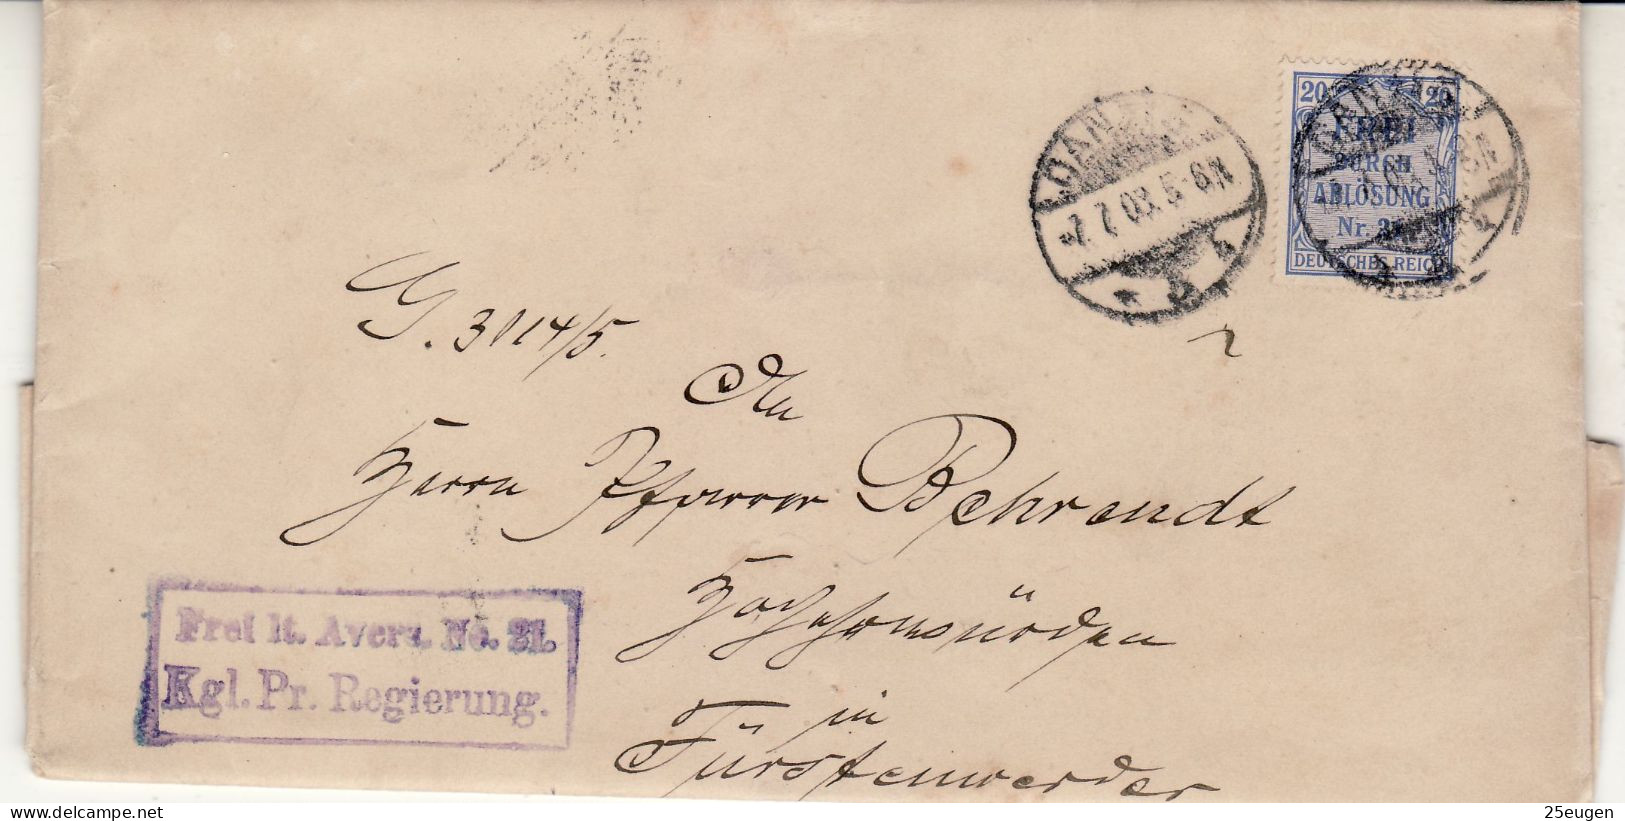 20 20
FREI
DURCH
ABLÖSUNG
Nr. 21
DEUTSCHES REICH
DANZIG
7.7.03. 5-6N
G. 3014/5.
An
Herrn Pfarrer Behrendt
Hochehrwürden
in
Fürstenwerder
Frei lt. Avers. No. 21.
Kgl. Pr. Regierung.
25eugen